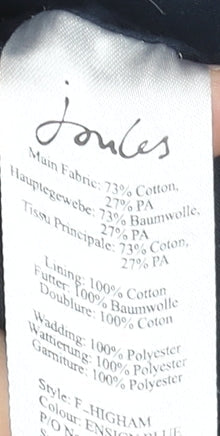 Joules
Main Fabric: 73% Cotton,
27% PA
Hauptegewebe: 73% Baumwolle,
27% PA
Tissu Principale: 73% Coton,
27% PA
Lining: 100% Cotton
Futter: 100% Baumwolle
Doublure: 100% Coton
Wadding: 100% Polyester
Wattierung: 100% Polyester
Garniture: 100% Polyester
Style: F_HIGHAM
Colour: ENSIGN BLUE
P/O